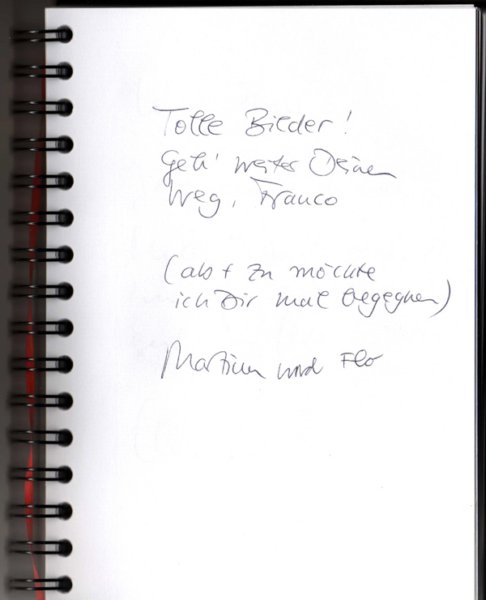 Tolle Bilder!
Geh' weiter Deinen
Weg, Franco
(ab + zu möchte
ich Dir mal begegnen)
und Flo